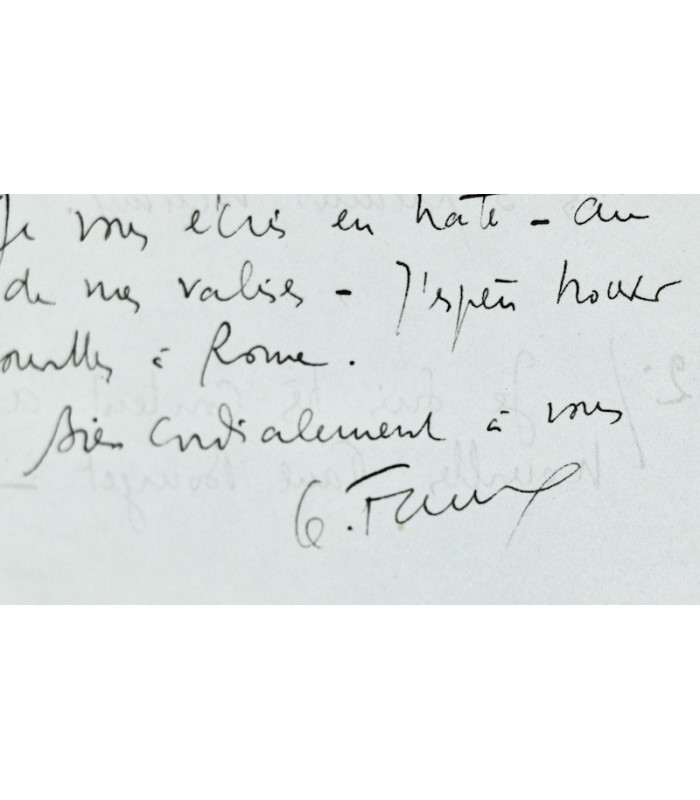 Je vous écris en hâte - au
de mes valises - J'espère trouver
ouvelles à Rome.
Bien cordialement à vous
G. Faure